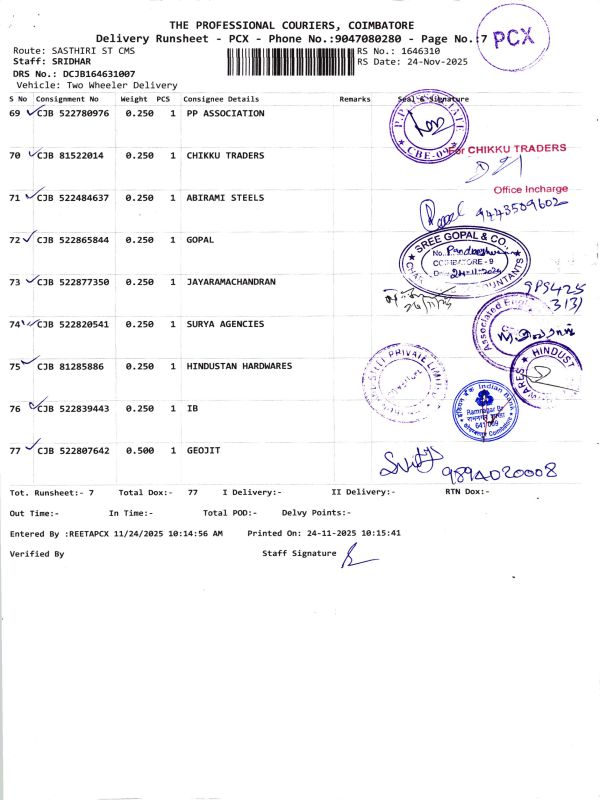 THE PROFESSIONAL COURIERS, COIMBATORE
Delivery Runsheet - PCX - Phone No.:9047080280 - Page No.:7
PCX
Route: SASTHIRI ST CMS
RS No.: 1646310
Staff: SRIDHAR
RS Date: 24-Nov-2025
DRS No.: DCJB164631007
Vehicle: Two Wheeler Delivery
S No Consignment No Weight PCS Consignee Details Remarks Seal & Signature
69 CJB 522780976 0.250 1 PP ASSOCIATION
CBE-09
70 CJB 81522014 0.250 1 CHIKKU TRADERS
For CHIKKU TRADERS
Office Incharge
71 CJB 522484637 0.250 1 ABIRAMI STEELS
9443509602
72 CJB 522865844 0.250 1 GOPAL
SREE GOPAL & CO.,
COIMBATORE - 9
73 CJB 522877350 0.250 1 JAYARAMACHANDRAN
26/11/25
74 CJB 522820541 0.250 1 SURYA AGENCIES
Associated
75 CJB 81285886 0.250 1 HINDUSTAN HARDWARES
PRIVATE LIMITED
HINDUST
WARES
76 CJB 522839443 0.250 1 IB
Indian Bank
Ramnagar Br.
641 009
Coimbatore
77 CJB 522807642 0.500 1 GEOJIT
9894020008
Tot. Runsheet:- 7 Total Dox:- 77 I Delivery:- II Delivery:- RTN Dox:-
Out Time:- In Time:- Total POD:- Delvy Points:-
Entered By :REETAPCX 11/24/2025 10:14:56 AM Printed On: 24-11-2025 10:15:41
Verified By Staff Signature